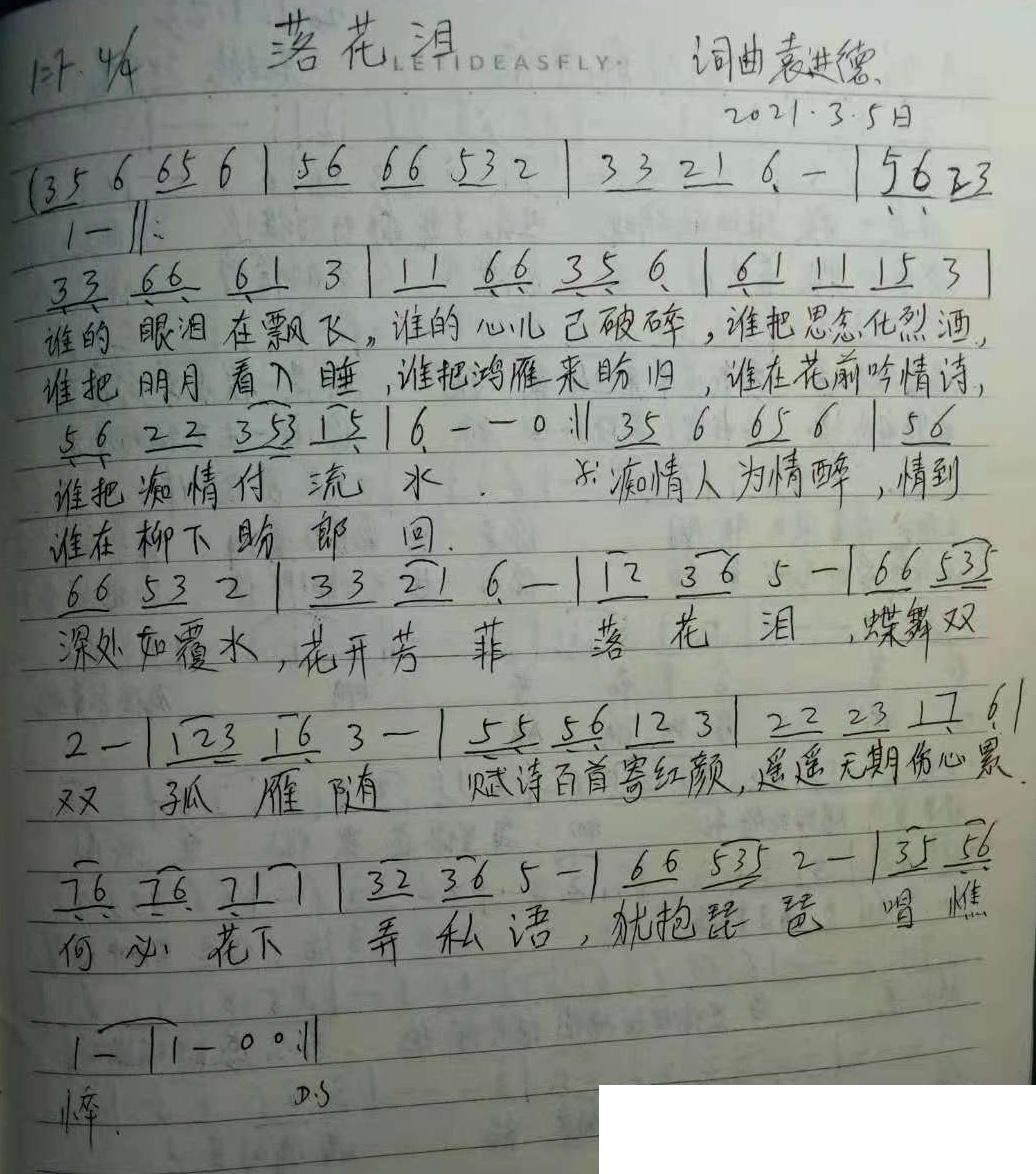 落花泪
LETIDEASFLY·
1=F. 4/4
词曲袁进德、
2021·3·5日
(35 6 65 6 | 56 66 53 2 | 33 21 6 - | 56 23
1 - ‖:
33 66 61 3 | 11 66 35 6 | 61 11 15 3 |
谁的 眼泪 在飘飞,谁的 心儿 已破碎,谁把思念化烈酒,
谁把 明月 看入睡,谁把鸿雁来盼归,谁在花前吟情诗,
56 22 353 15 | 6 - - 0 :‖ 35 6 65 6 | 56
谁把痴情付流水. 痴情人为情醉,情到
谁在柳下盼郎回.
66 53 2 | 33 21 6 - | 12 36 5 - | 66 535
深处如覆水,花开芳菲 落花泪,蝶舞双
2 - | 123 16 3 - | 55 56 12 3 | 22 23 17 6 |
双 孤雁随 赋诗百首寄红颜,遥遥无期伤心累.
76 76 71 1 | 32 36 5 - | 66 535 2 - | 35 56
何必花下 弄私语,犹抱琵琶 唱憔
1 - | 1 - 0 0 :‖
悴. D.S